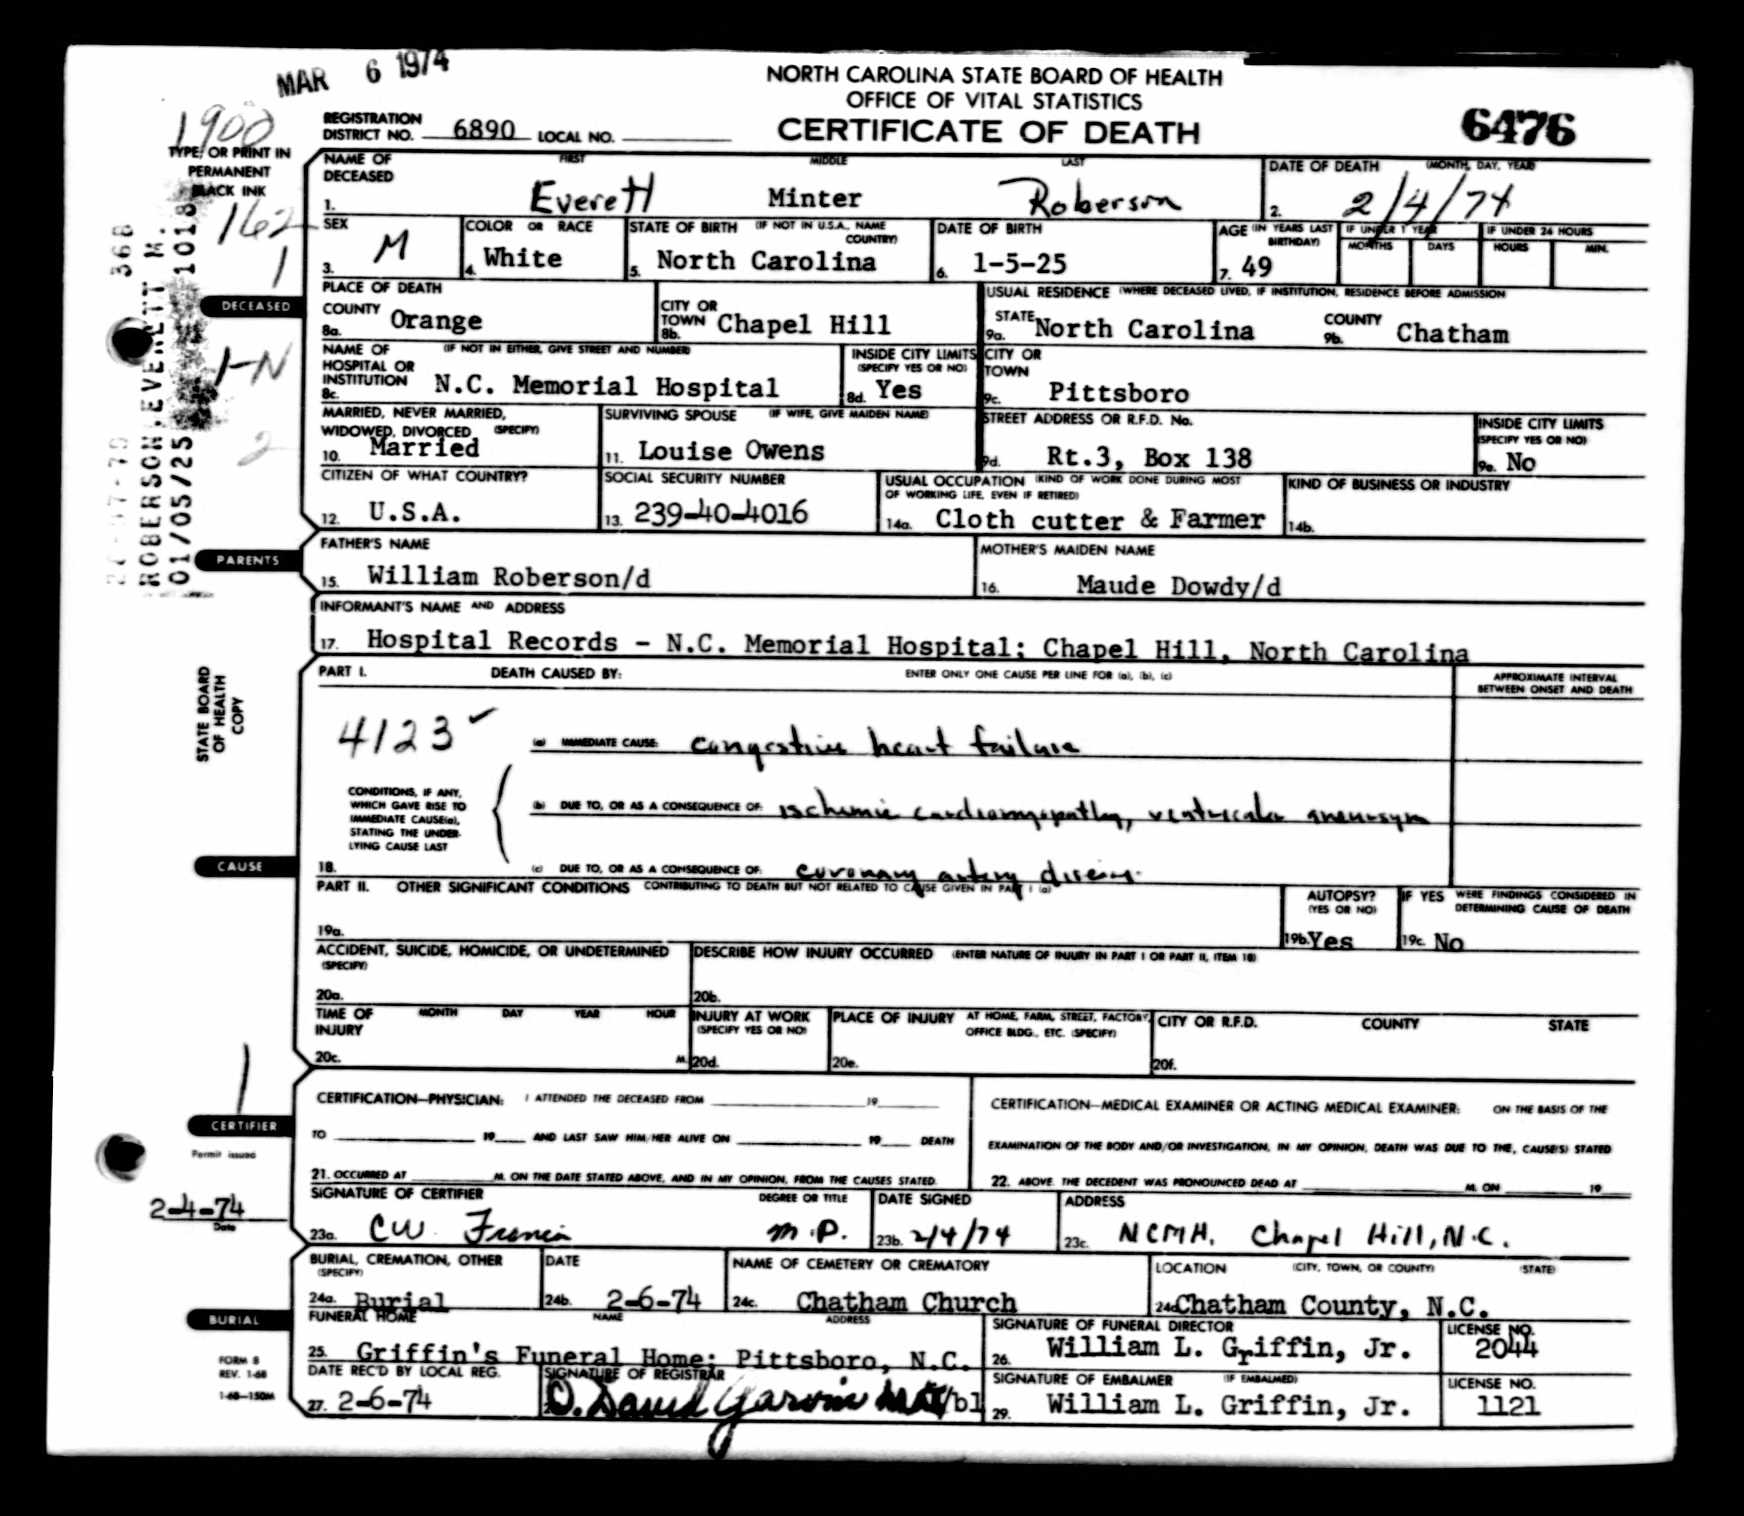 MAR 6 1974
NORTH CAROLINA STATE BOARD OF HEALTH
OFFICE OF VITAL STATISTICS
CERTIFICATE OF DEATH
6476
1900
REGISTRATION DISTRICT NO. 6890 LOCAL NO.
TYPE, OR PRINT IN PERMANENT BLACK INK
162
1
1-N
2
368
ROBERSON, EVERETT M.
01/05/25 1018
DECEASED
NAME OF DECEASED FIRST MIDDLE LAST
1. Everett Minter Roberson
DATE OF DEATH (MONTH, DAY, YEAR)
2. 2/4/74
SEX
3. M
COLOR OR RACE
4. White
STATE OF BIRTH (IF NOT IN U.S.A., NAME COUNTRY)
5. North Carolina
DATE OF BIRTH
6. 1-5-25
AGE (IN YEARS LAST BIRTHDAY)
7. 49
IF UNDER 1 YEAR MONTHS DAYS
IF UNDER 24 HOURS HOURS MIN.
PLACE OF DEATH
COUNTY
8a. Orange
CITY OR TOWN
8b. Chapel Hill
USUAL RESIDENCE (WHERE DECEASED LIVED, IF INSTITUTION, RESIDENCE BEFORE ADMISSION
STATE
9a. North Carolina
COUNTY
9b. Chatham
NAME OF HOSPITAL OR INSTITUTION (IF NOT IN EITHER, GIVE STREET AND NUMBER)
8c. N.C. Memorial Hospital
INSIDE CITY LIMITS (SPECIFY YES OR NO)
8d. Yes
CITY OR TOWN
9c. Pittsboro
MARRIED, NEVER MARRIED, WIDOWED, DIVORCED (SPECIFY)
10. Married
SURVIVING SPOUSE (IF WIFE, GIVE MAIDEN NAME)
11. Louise Owens
STREET ADDRESS OR R.F.D. No.
9d. Rt.3, Box 138
INSIDE CITY LIMITS (SPECIFY YES OR NO)
9e. No
CITIZEN OF WHAT COUNTRY?
12. U.S.A.
SOCIAL SECURITY NUMBER
13. 239-40-4016
USUAL OCCUPATION (KIND OF WORK DONE DURING MOST OF WORKING LIFE, EVEN IF RETIRED)
14a. Cloth cutter & Farmer
KIND OF BUSINESS OR INDUSTRY
14b.
PARENTS
FATHER'S NAME
15. William Roberson/d
MOTHER'S MAIDEN NAME
16. Maude Dowdy/d
INFORMANT'S NAME AND ADDRESS
17. Hospital Records - N.C. Memorial Hospital; Chapel Hill, North Carolina
STATE BOARD OF HEALTH COPY
PART I. DEATH CAUSED BY: ENTER ONLY ONE CAUSE PER LINE FOR (a), (b), (c)
APPROXIMATE INTERVAL BETWEEN ONSET AND DEATH
4123 ✓
(a) IMMEDIATE CAUSE: congestive heart failure
CONDITIONS, IF ANY, WHICH GAVE RISE TO IMMEDIATE CAUSE(a), STATING THE UNDERLYING CAUSE LAST
(b) DUE TO, OR AS A CONSEQUENCE OF: ischemic cardiomyopathy, ventricular aneurysm
CAUSE
18. (c) DUE TO, OR AS A CONSEQUENCE OF: coronary artery disease
PART II. OTHER SIGNIFICANT CONDITIONS CONTRIBUTING TO DEATH BUT NOT RELATED TO CAUSE GIVEN IN PART I (a)
19a.
AUTOPSY? (YES OR NO)
19b. Yes
IF YES WERE FINDINGS CONSIDERED IN DETERMINING CAUSE OF DEATH
19c. No
ACCIDENT, SUICIDE, HOMICIDE, OR UNDETERMINED (SPECIFY)
20a.
DESCRIBE HOW INJURY OCCURRED (ENTER NATURE OF INJURY IN PART I OR PART II, ITEM 18)
20b.
TIME OF INJURY MONTH DAY YEAR HOUR
20c. M.
INJURY AT WORK (SPECIFY YES OR NO)
20d.
PLACE OF INJURY AT HOME, FARM, STREET, FACTORY, OFFICE BLDG., ETC. (SPECIFY)
20e.
CITY OR R.F.D. COUNTY STATE
20f.
1
CERTIFIER
CERTIFICATION—PHYSICIAN: I ATTENDED THE DECEASED FROM 19
TO 19 AND LAST SAW HIM/HER ALIVE ON 19 DEATH
21. OCCURRED AT M. ON THE DATE STATED ABOVE, AND IN MY OPINION, FROM THE CAUSES STATED.
CERTIFICATION—MEDICAL EXAMINER OR ACTING MEDICAL EXAMINER: ON THE BASIS OF THE
EXAMINATION OF THE BODY AND/OR INVESTIGATION, IN MY OPINION, DEATH WAS DUE TO THE, CAUSE(S) STATED
22. ABOVE. THE DECEDENT WAS PRONOUNCED DEAD AT M. ON 19
Permit issued
2-4-74
Date
SIGNATURE OF CERTIFIER DEGREE OR TITLE
23a. CW. Francis M.D.
DATE SIGNED
23b. 2/4/74
ADDRESS
23c. NCMH, Chapel Hill, N.C.
BURIAL, CREMATION, OTHER (SPECIFY)
24a. Burial
DATE
24b. 2-6-74
NAME OF CEMETERY OR CREMATORY
24c. Chatham Church
LOCATION (CITY, TOWN, OR COUNTY) (STATE)
24d Chatham County, N.C.
BURIAL
FUNERAL HOME NAME ADDRESS
25. Griffin's Funeral Home; Pittsboro, N.C.
SIGNATURE OF FUNERAL DIRECTOR
26. William L. Griffin, Jr.
LICENSE NO.
2044
FORM 8
REV. 1-68
1-68—150M
DATE REC'D BY LOCAL REG.
27. 2-6-74
SIGNATURE OF REGISTRAR
O. David Garvin /bl
SIGNATURE OF EMBALMER (IF EMBALMED)
29. William L. Griffin, Jr.
LICENSE NO.
1121